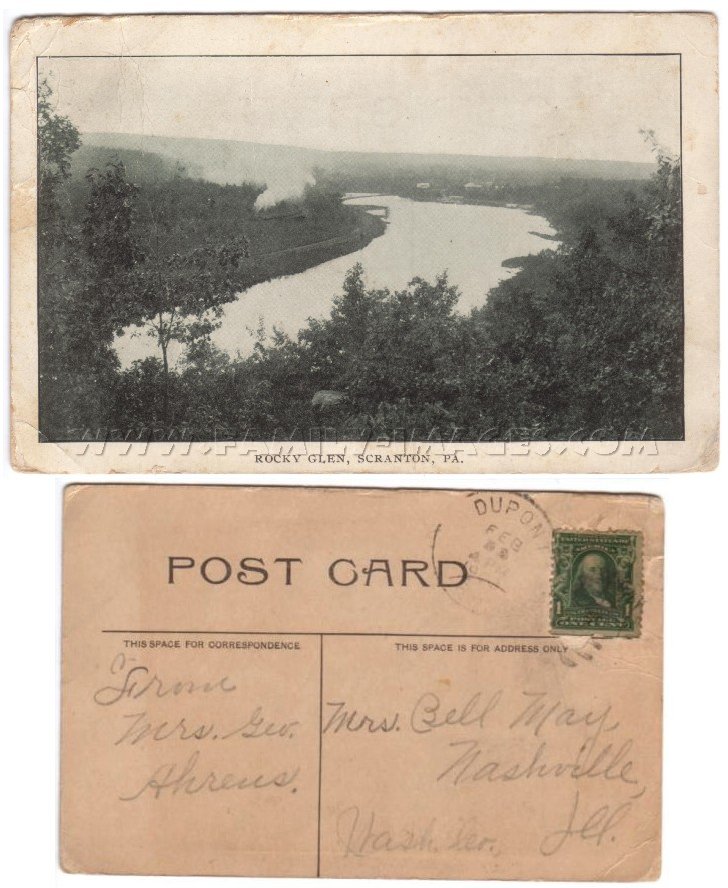 WWW.FAMILY-IMAGES.COM
ROCKY GLEN, SCRANTON, PA.
DUPONT
FEB
POST CARD
UNITED STATES OF
AMERICA
1 1
POSTAGE
ONE CENT
THIS SPACE FOR CORRESPONDENCE
THIS SPACE IS FOR ADDRESS ONLY
From
Mrs. Geo.
Ahrens.
Mrs. Bell May,
Nashville,
Nash. Co., Ill.